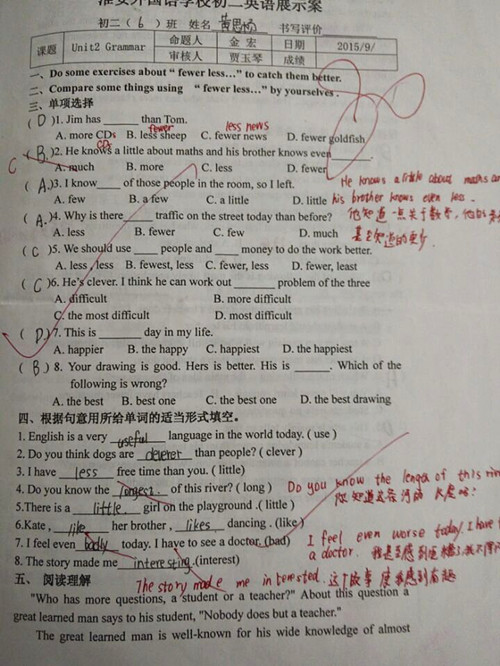 淮安外国语学校初二英语展示案
初二( 6 )班 姓名 黄思杨 书写评价
课题 Unit2 Grammar 命题人 金 宏 日期 2015/9/
审核人 贾玉琴 成绩
一、Do some exercises about “ fewer less…” to catch them better.
二、Compare some things using “ fewer less…” by yourselves .
三、单项选择
( D )1. Jim has ______ than Tom.
fewer less news
A. more CDs B. less sheep C. fewer news D. fewer goldfish
CDs
C ( B. )2. He knows a little about maths and his brother knows even______.
A. much B. more C. less D. fewer
He knows a little about maths and
( A. )3. I know_____ of those people in the room, so I left.
A. few B. a few C. a little D. little
his brother knows even less.
( A. )4. Why is there_____ traffic on the street today than before?
他知道一点关于数学,他的
A. less B. fewer C. few D. much
甚至知道的更少.
( C )5. We should use ____ people and ____ money to do the work better.
A. less, less B. fewest, less C. fewer, less D. fewer, least
( C )6. He’s clever. I think he can work out ______ problem of the three
A. difficult B. more difficult
C. the most difficult D. most difficult
( D. )7. This is _______ day in my life.
A. happier B. the happy C. happiest D. the happiest
( B ) 8. Your drawing is good. Hers is better. His is ______. Which of the
following is wrong?
A. the best B. best one C. the best one D. the best drawing
四、根据句意用所给单词的适当形式填空。
1. English is a very useful language in the world today. ( use )
2. Do you think dogs are cleverer than people? ( clever )
3. I have less free time than you. ( little)
4. Do you know the longest of this river? ( long )
Do you know the length of this river
5.There is a little girl on the playground .( little )
你知道这条河的长度吗?
6.Kate , like her brother , likes dancing . (like )
7. I feel even badly today. I have to see a doctor. (bad)
I feel even worse today. I have
a doctor.
8. The story made me interesting .(interest)
五、 阅读理解
The story made me interested. 这个故事使我感到有趣
"Who has more questions, a student or a teacher?" About this question a
great learned man says to his student, "Nobody does but a teacher."
The great learned man is well-known for his wide knowledge of almost